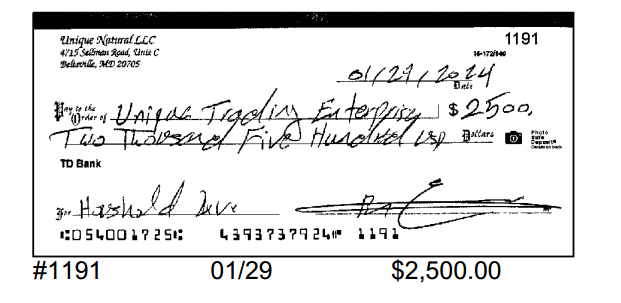 Unique Natural LLC
4715 Sellman Road, Unit C
Beltsville, MD 20705
1191
01/29/2024
Date
Pay to the Order of Unique Trading Enterprise $ 2500.
Two Thousand Five Hundred USD Dollars
Photo Safe Deposit®
TD Bank
For
⑆054001725⑆ 4393737924⑈ 1191
#1191 01/29 $2,500.00